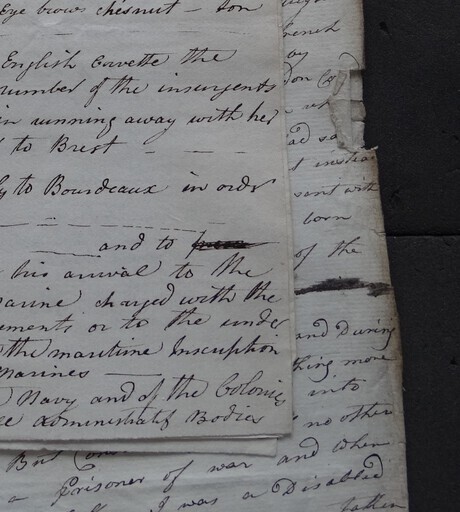 Eye brows chesnut — Son
English Corvette the
number of the insurgents
in running away with her
to Brest
to Bourdeaux in order
and to
his arrival to the
marine charged with the
or to the under
the maritime Inscription
Marines
Navy and of the Colonies
administratif Bodies
french
by
instead
sent with
torn
of the
and During
thing more
into
no other
a Prisoner of war and when
I was a Disabled
taken